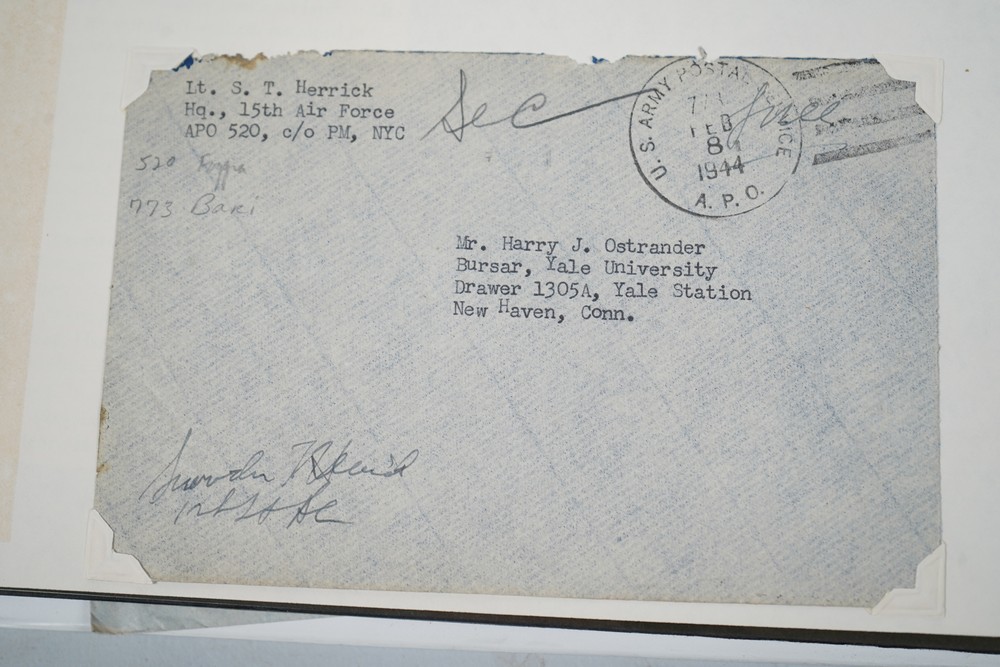 Lt. S. T. Herrick
Hq., 15th Air Force
APO 520, c/o PM, NYC
520 Foggia
773 Bari
Free
U. S. ARMY POSTAL SERVICE
773
FEB
8
1944
A. P. O.
Mr. Harry J. Ostrander
Bursar, Yale University
Drawer 1305A, Yale Station
New Haven, Conn.
1st Lt AC